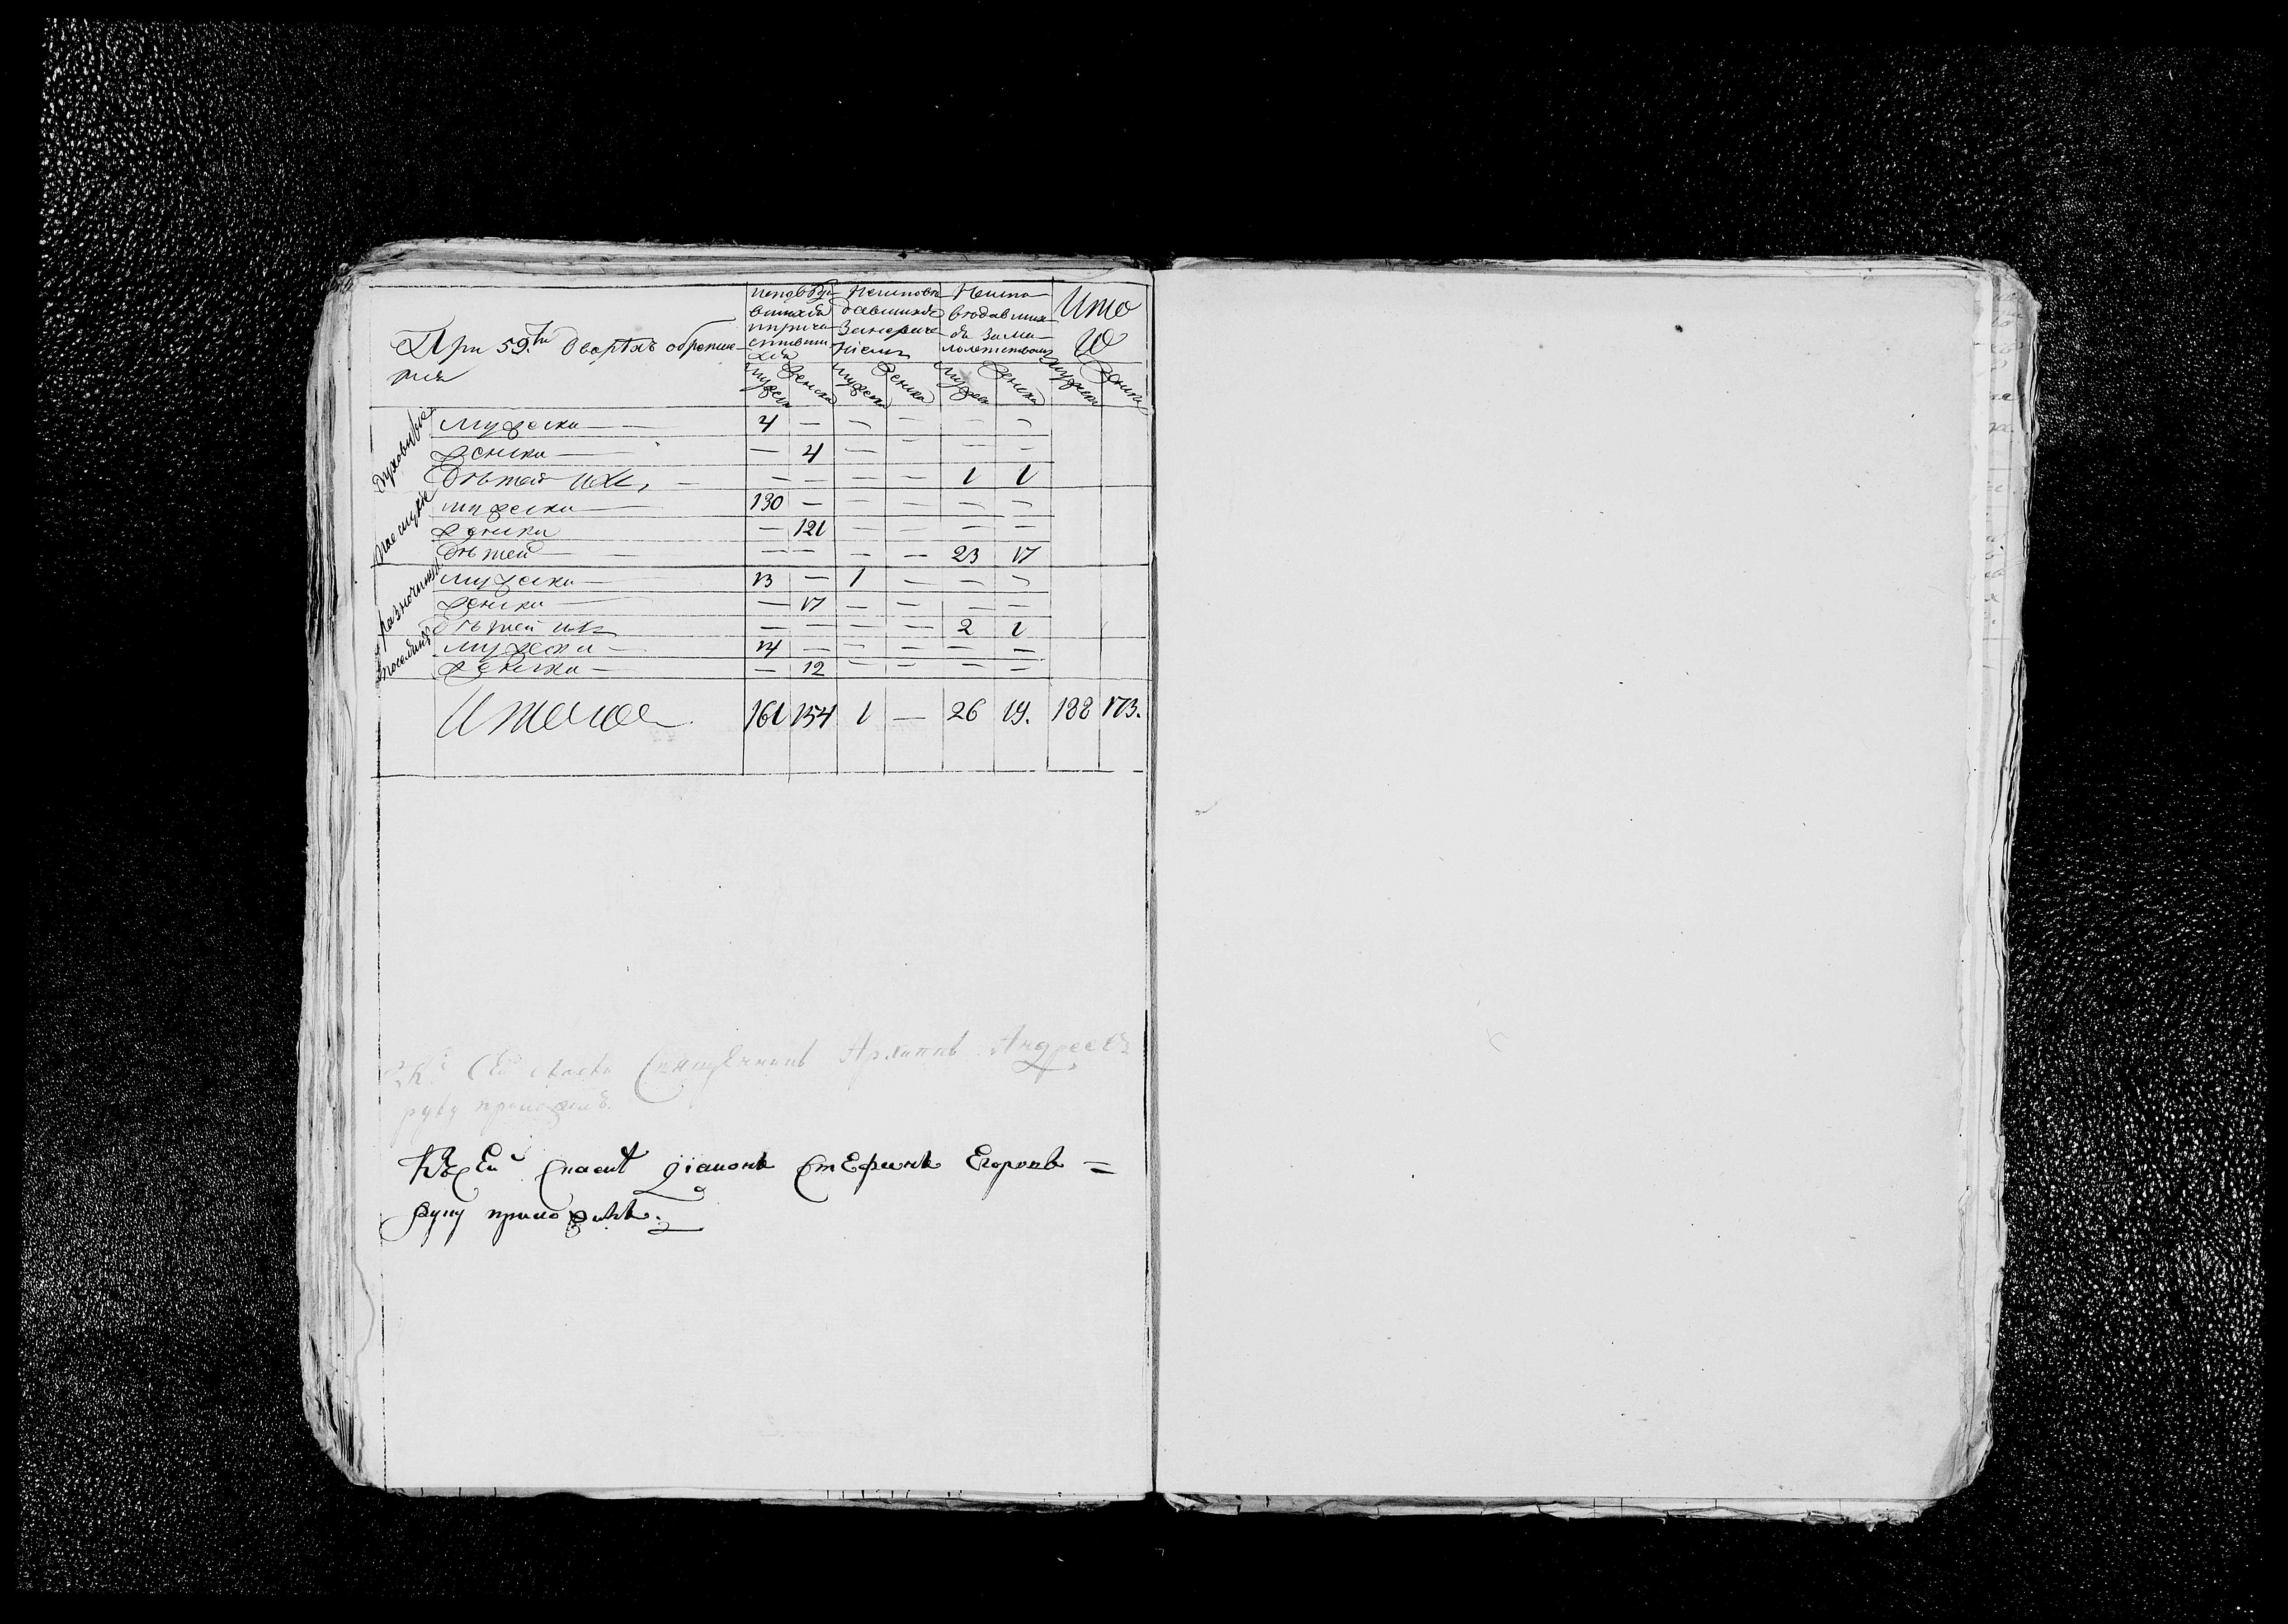 При 59.ти дворѣхъ обрѣтае-
тся
Исповѣда-
вшихся
и прича-
стивши
хся
Неисповѣ-
давшихся
За нераче-
ніемъ
Неиспо-
вѣдавших-
ся За ма-
лолетством
Ито
го
мужеска женска мужеска женска мужеска женска мужеска женска
Духовныя мужеска — 4 — — — — —
женска — — 4 — — —
дѣтей ихъ, — — — — — 1 1
мужеска — 130 — — — — —
женска — 121 — — — —
дѣтей — — — — — 23 17
разночинцы мужеска — 13 — 1 — — —
женска — — 17 — — — —
дѣтей ихъ — — — — 2 1
мужеска — 14 — — — — —
женска — — 12 — — — —
Итого 161 154 1 — 26 19. 188 173.
Священникъ Архиппъ Андреевъ
руку приложилъ.
Къ сей діаконъ Стефанъ Егоровъ =
руку приложилъ.